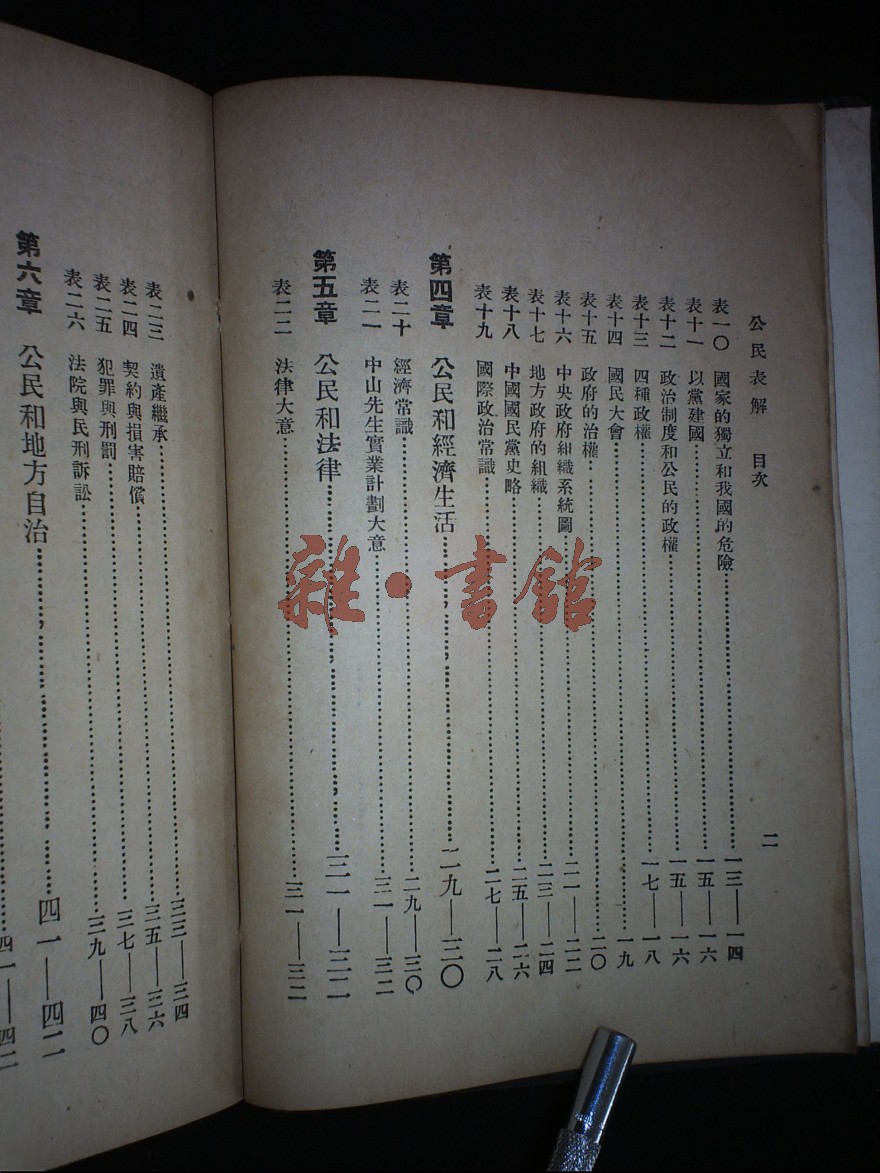 公民表解 目次 二
表一〇 國家的獨立和我國的危險……一三——一四
表十一 以黨建國……一五——一六
表十二 政治制度和公民的政權……一五——一六
表十三 四種政權……一七——一八
表十四 國民大會……一九
表十五 政府的治權……二〇
表十六 中央政府組織系統圖……二一——二二
表十七 地方政府的組織……二三——二四
表十八 中國國民黨史略……二五——二六
表十九 國際政治常識……二七——二八
第四章 公民和經濟生活……二九——三〇
表二十 經濟常識……二九——三〇
表二一 中山先生實業計劃大意……三一——三二
第五章 公民和法律……三一——三二
表二二 法律大意……三一——三二
表二三 遺產繼承……三三——三四
表二四 契約與損害賠償……三五——三六
表二五 犯罪與刑罰……三七——三八
表二六 法院與民刑訴訟……三九——四〇
第六章 公民和地方自治……四一——四二
……四一——四二
雜·書館